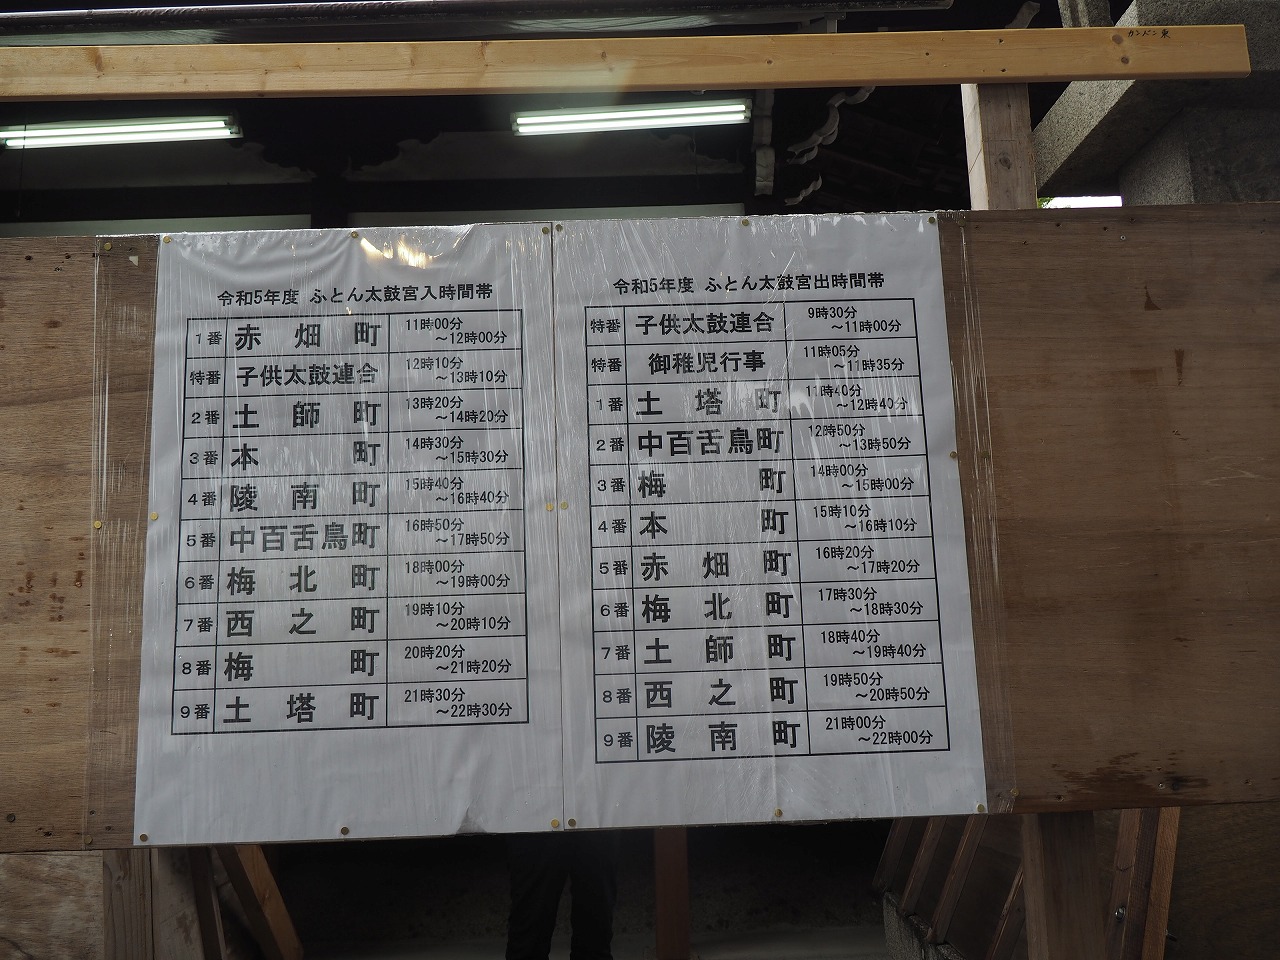 カンヌキ東
令和5年度 ふとん太鼓宮入時間帯
1番 赤畑町 11時00分～12時00分
特番 子供太鼓連合 12時10分～13時10分
2番 土師町 13時20分～14時20分
3番 本町 14時30分～15時30分
4番 陵南町 15時40分～16時40分
5番 中百舌鳥町 16時50分～17時50分
6番 梅北町 18時00分～19時00分
7番 西之町 19時10分～20時10分
8番 梅町 20時20分～21時20分
9番 土塔町 21時30分～22時30分
令和5年度 ふとん太鼓宮出時間帯
特番 子供太鼓連合 9時30分～11時00分
特番 御稚児行事 11時05分～11時35分
1番 土塔町 11時40分～12時40分
2番 中百舌鳥町 12時50分～13時50分
3番 梅町 14時00分～15時00分
4番 本町 15時10分～16時10分
5番 赤畑町 16時20分～17時20分
6番 梅北町 17時30分～18時30分
7番 土師町 18時40分～19時40分
8番 西之町 19時50分～20時50分
9番 陵南町 21時00分～22時00分